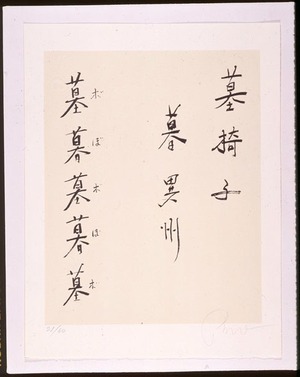 墓椅子
暮異州
墓暮墓暮墓
ボぼボぼボ